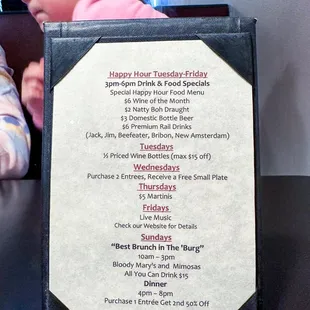 Happy Hour Tuesday-Friday
3pm-6pm Drink & Food Specials
Special Happy Hour Food Menu
$6 Wine of the Month
$2 Natty Boh Draught
$3 Domestic Bottle Beer
$6 Premium Rail Drinks
(Jack, Jim, Beefeater, Bribon, New Amsterdam)
Tuesdays
½ Priced Wine Bottles (max $15 off)
Wednesdays
Purchase 2 Entrees, Receive a Free Small Plate
Thursdays
$5 Martinis
Fridays
Live Music
Check our Website for Details
Sundays
"Best Brunch in The 'Burg"
10am – 3pm
Bloody Mary's and Mimosas
All You Can Drink $15
Dinner
4pm – 8pm
Purchase 1 Entrée Get 2nd 50% Off